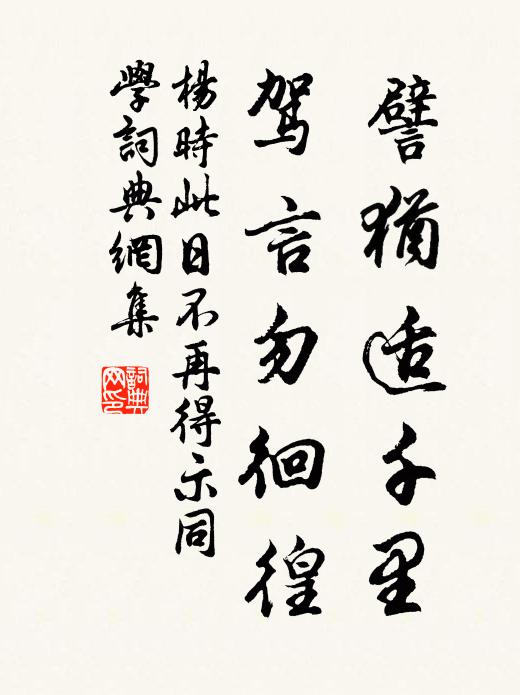 譬猶适千里
驾言勿徊徨
楊時此日不再得示同
學詞典網集
詞典
网印